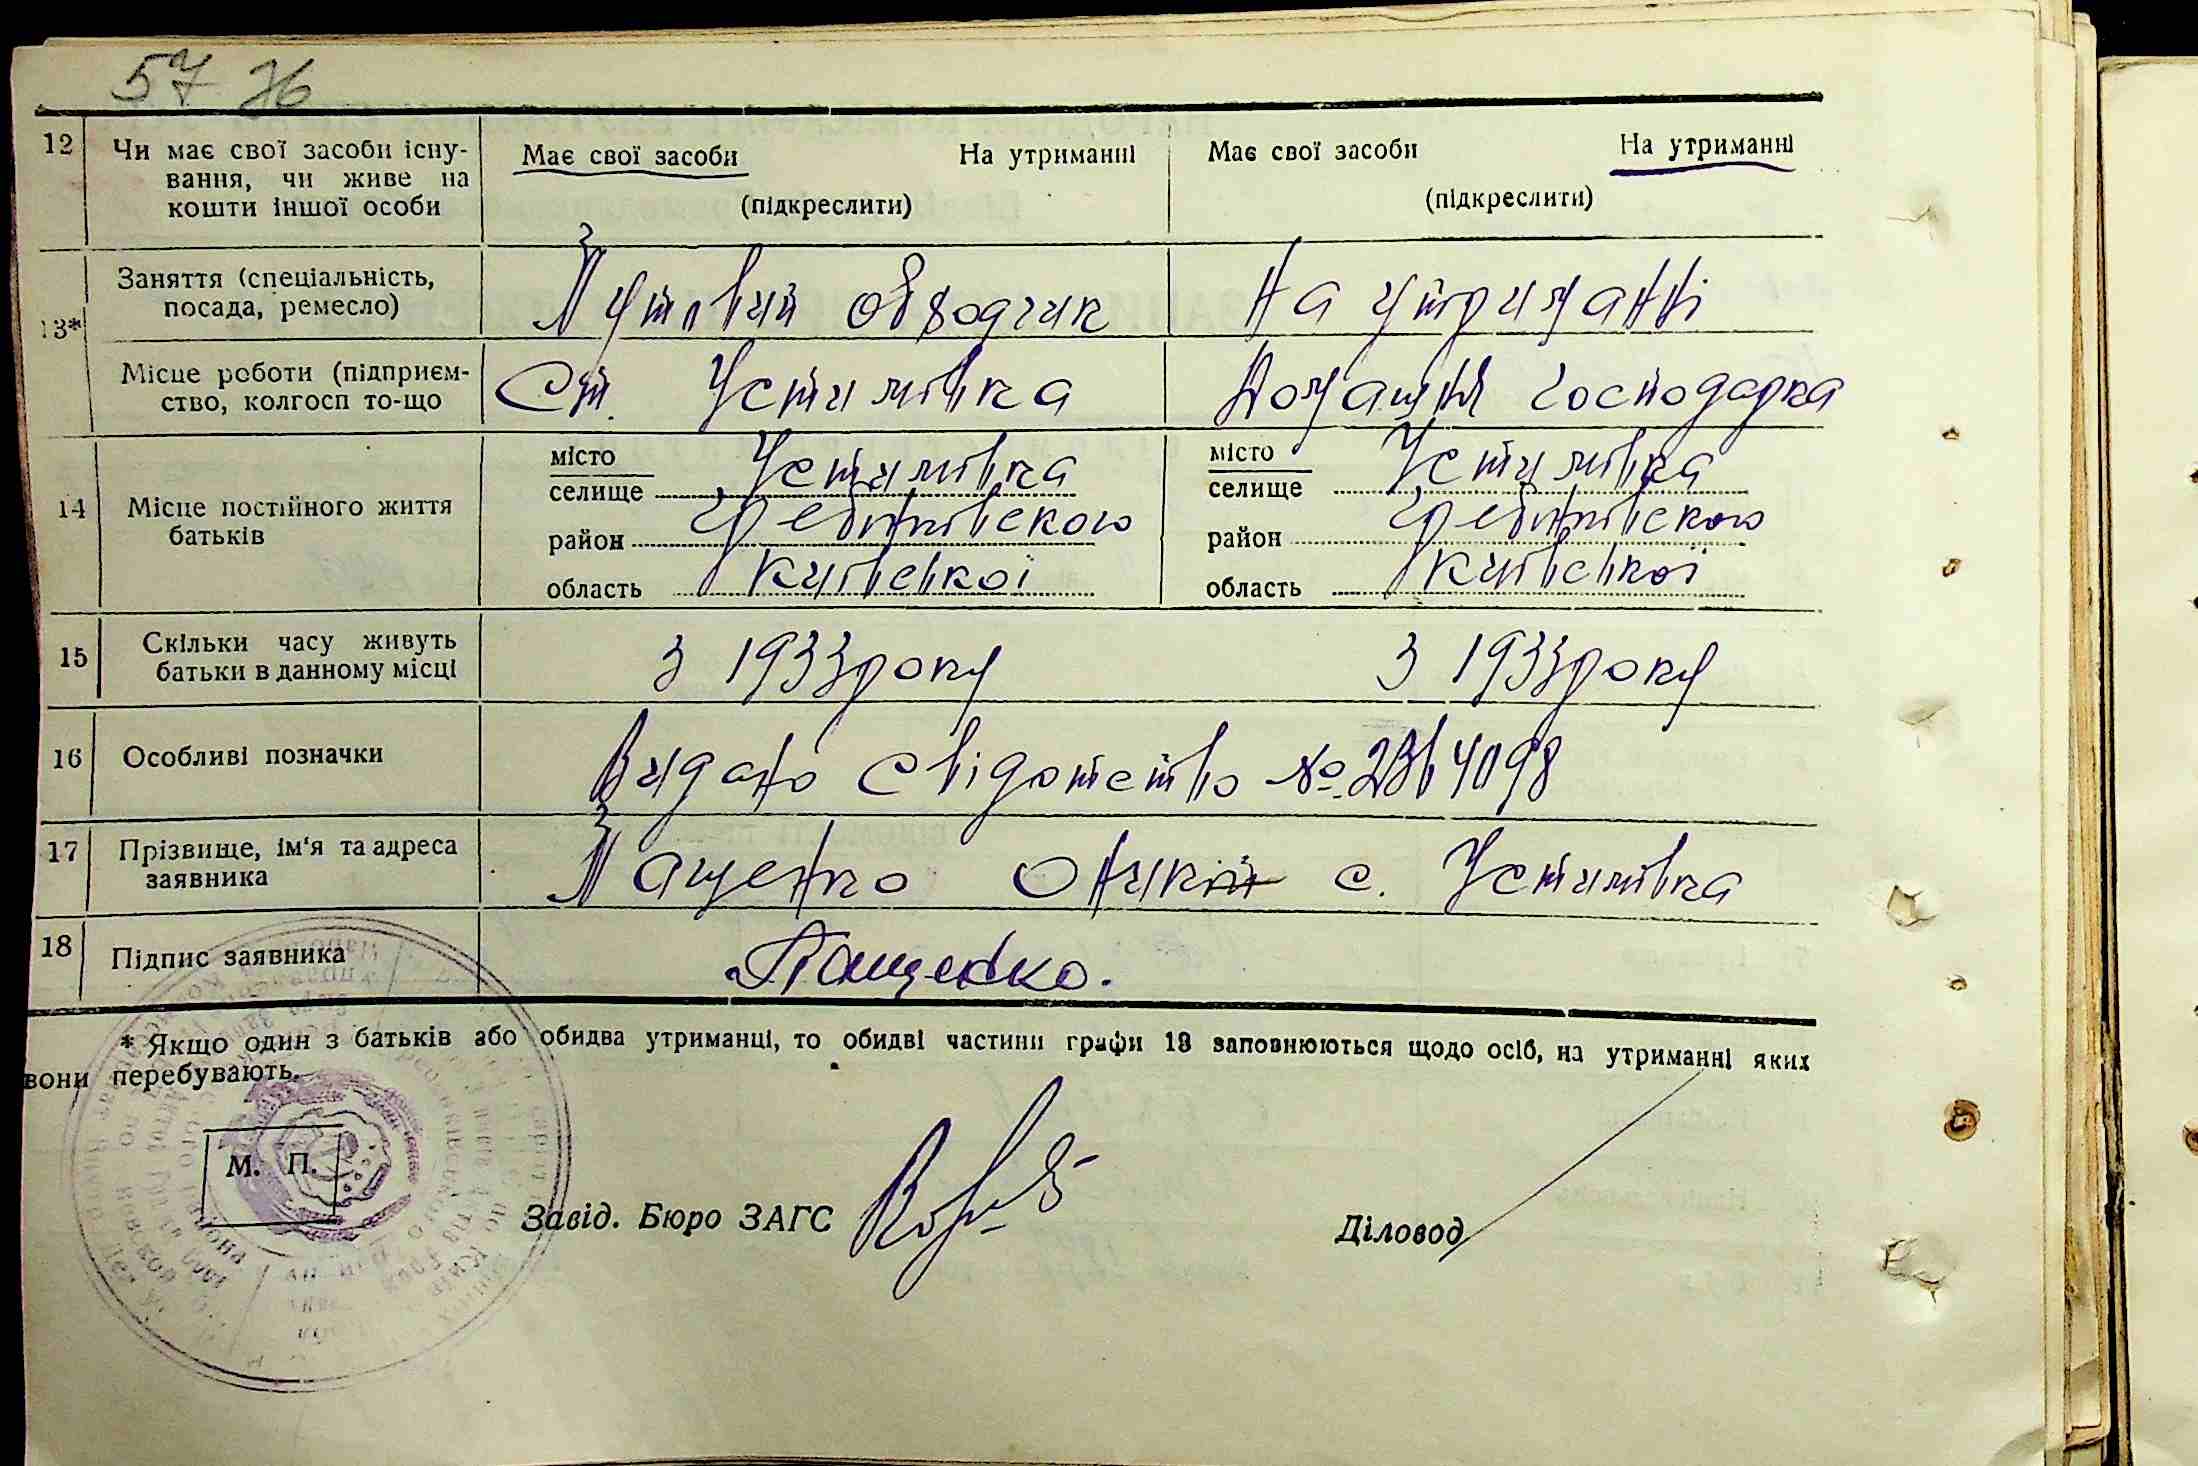 57 Ж
12 Чи має свої засоби існу- Має свої засоби На утриманні Має свої засоби На утриманні
вання, чи живе на
кошти іншої особи (підкреслити) (підкреслити)
13* Заняття (спеціальність, Путовий обходчик На утриманні
посада, ремесло)
Місце роботи (підприєм- Ст. Устимівка Домашня господарка
ство, колгосп то-що
14 Місце постійного життя батьків місто Устимівка місто Устимівка
селище селище
район Гребінківского район Гребінківского
область Київської область Київської
15 Скільки часу живуть з 1933 року з 1933 року
батьки в данному місці
16 Особливі позначки Видано свідотство №
17 Прізвище, ім'я та адреса Пащенко с. Устимівка
заявника
18 Підпис заявника Пащенко.
* Якщо один з батьків або обидва утриманці, то обидві частини графи 13 заповнюються щодо осіб, на утриманні яких
вони перебувають.
М. П.
Завід. Бюро ЗАГС Діловод